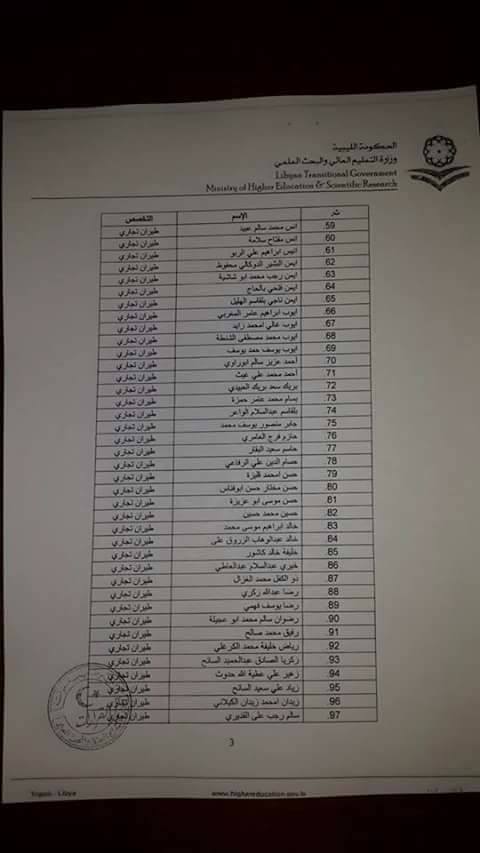 الحكومة الليبية
وزارة التعليم العالي والبحث العلمي
Libyan Transitional Government
Ministry of Higher Education & Scientific Research
ت.ر الإسم التخصص
59. انس محمد سالم عبيد طيران تجاري
60. انس مفتاح سلامة طيران تجاري
61. انيس ابراهيم علي الربو طيران تجاري
62. ايمن البشير الدوكالي محفوظ طيران تجاري
63. ايمن رجب محمد ابو شاشية طيران تجاري
64. ايمن فتحي بالحاج طيران تجاري
65. ايمن ناجي بلقاسم الهليل طيران تجاري
66. ايوب ابراهيم عامر المغربي طيران تجاري
67. ايوب غالي امحمد زايد طيران تجاري
68. ايوب محمد مصطفى الشلطة طيران تجاري
69. ايوب يوسف حمد يوسف طيران تجاري
70. أحمد عزيز سالم ابوراوي طيران تجاري
71. أحمد محمد علي غيث طيران تجاري
72. بريك سعد بريك العبيدي طيران تجاري
73. بسام محمد عامر حمزة طيران تجاري
74. بلقاسم عبدالسلام الواعر طيران تجاري
75. جابر منصور يوسف محمد طيران تجاري
76. حازم فرج العامري طيران تجاري
77. حاسم سعيد البقار طيران تجاري
78. حسام الدين علي الرفاعي طيران تجاري
79. حسن امحمد قليزة طيران تجاري
80. حسن مختار حسن ابوفناس طيران تجاري
81. حسن موسى ابو عزيزة طيران تجاري
82. حسين محمد حسين طيران تجاري
83. خالد ابراهيم موسى محمد طيران تجاري
84. خالد عبدالوهاب الزروق على طيران تجاري
85. خليفة خالد كاشور طيران تجاري
86. خيري عبدالسلام عبدالعاطي طيران تجاري
87. ذو الكفل محمد الغزال طيران تجاري
88. رضا عبدالله زكري طيران تجاري
89. رضا يوسف فهمي طيران تجاري
90. رضوان سالم محمد ابو عجيلة طيران تجاري
91. رفيق محمد صالح طيران تجاري
92. رياض خليفة محمد الكرغلي طيران تجاري
93. زكريا الصادق عبدالحميد السائح طيران تجاري
94. زهير علي عطية الله حدوث طيران تجاري
95. زياد علي سعيد السائح طيران تجاري
96. زيدان امحمد زيدان الكيلاني طيران تجاري
97. سالم رجب على القذيري طيران تجاري
3
Tripoli - Libya www.highereducation.gov.ly